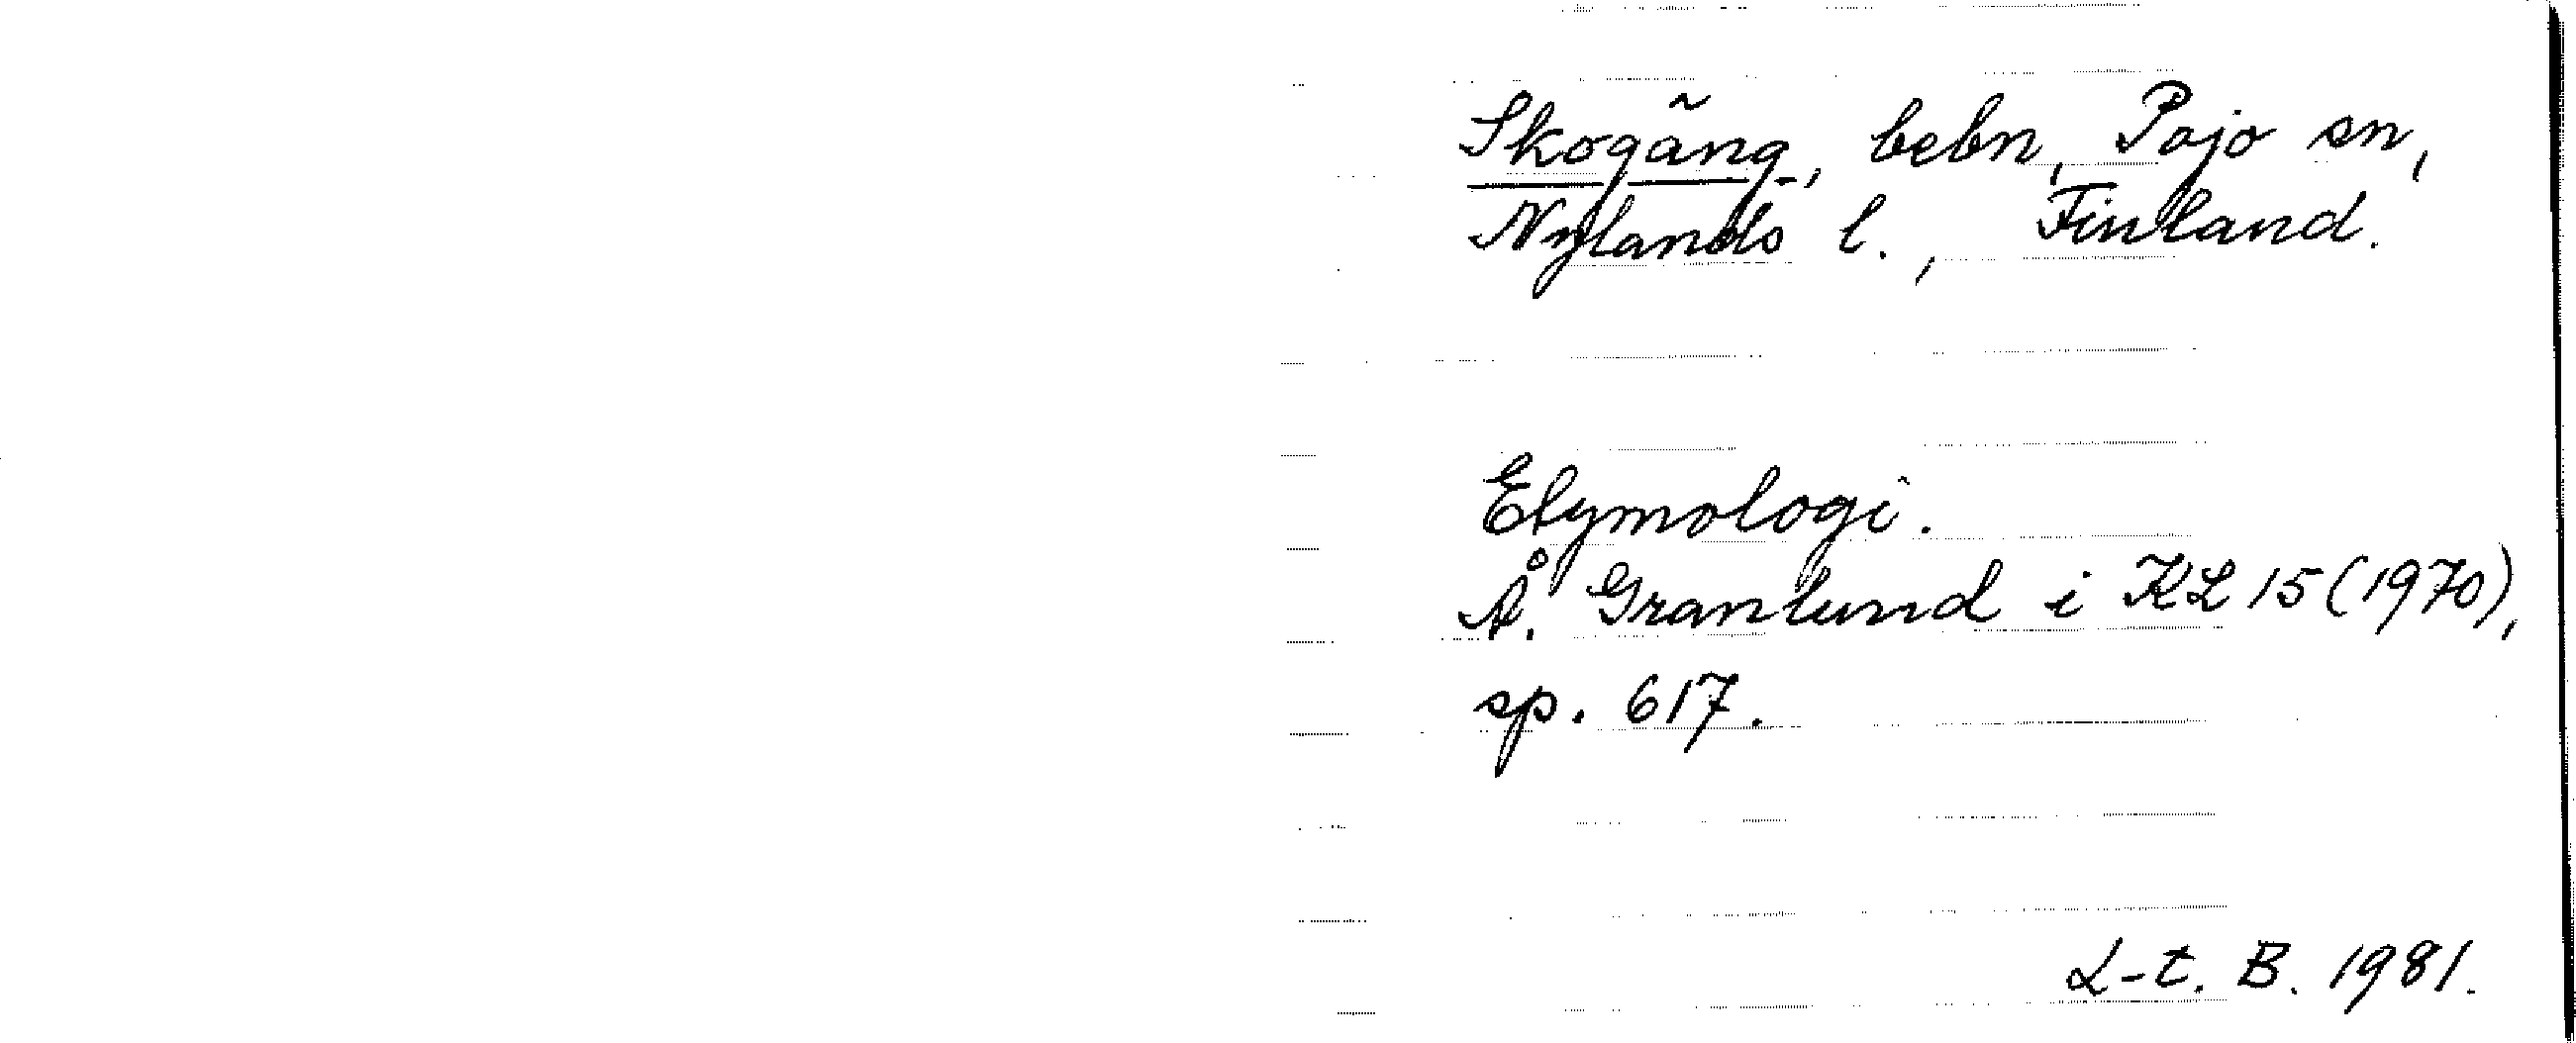 Skogäng, bebn, Pojo sn,
Nylands l., Finland.
Etymologi.
Å. Granlund i KL 15 (1970),
sp. 617.
L-t. B. 1981.